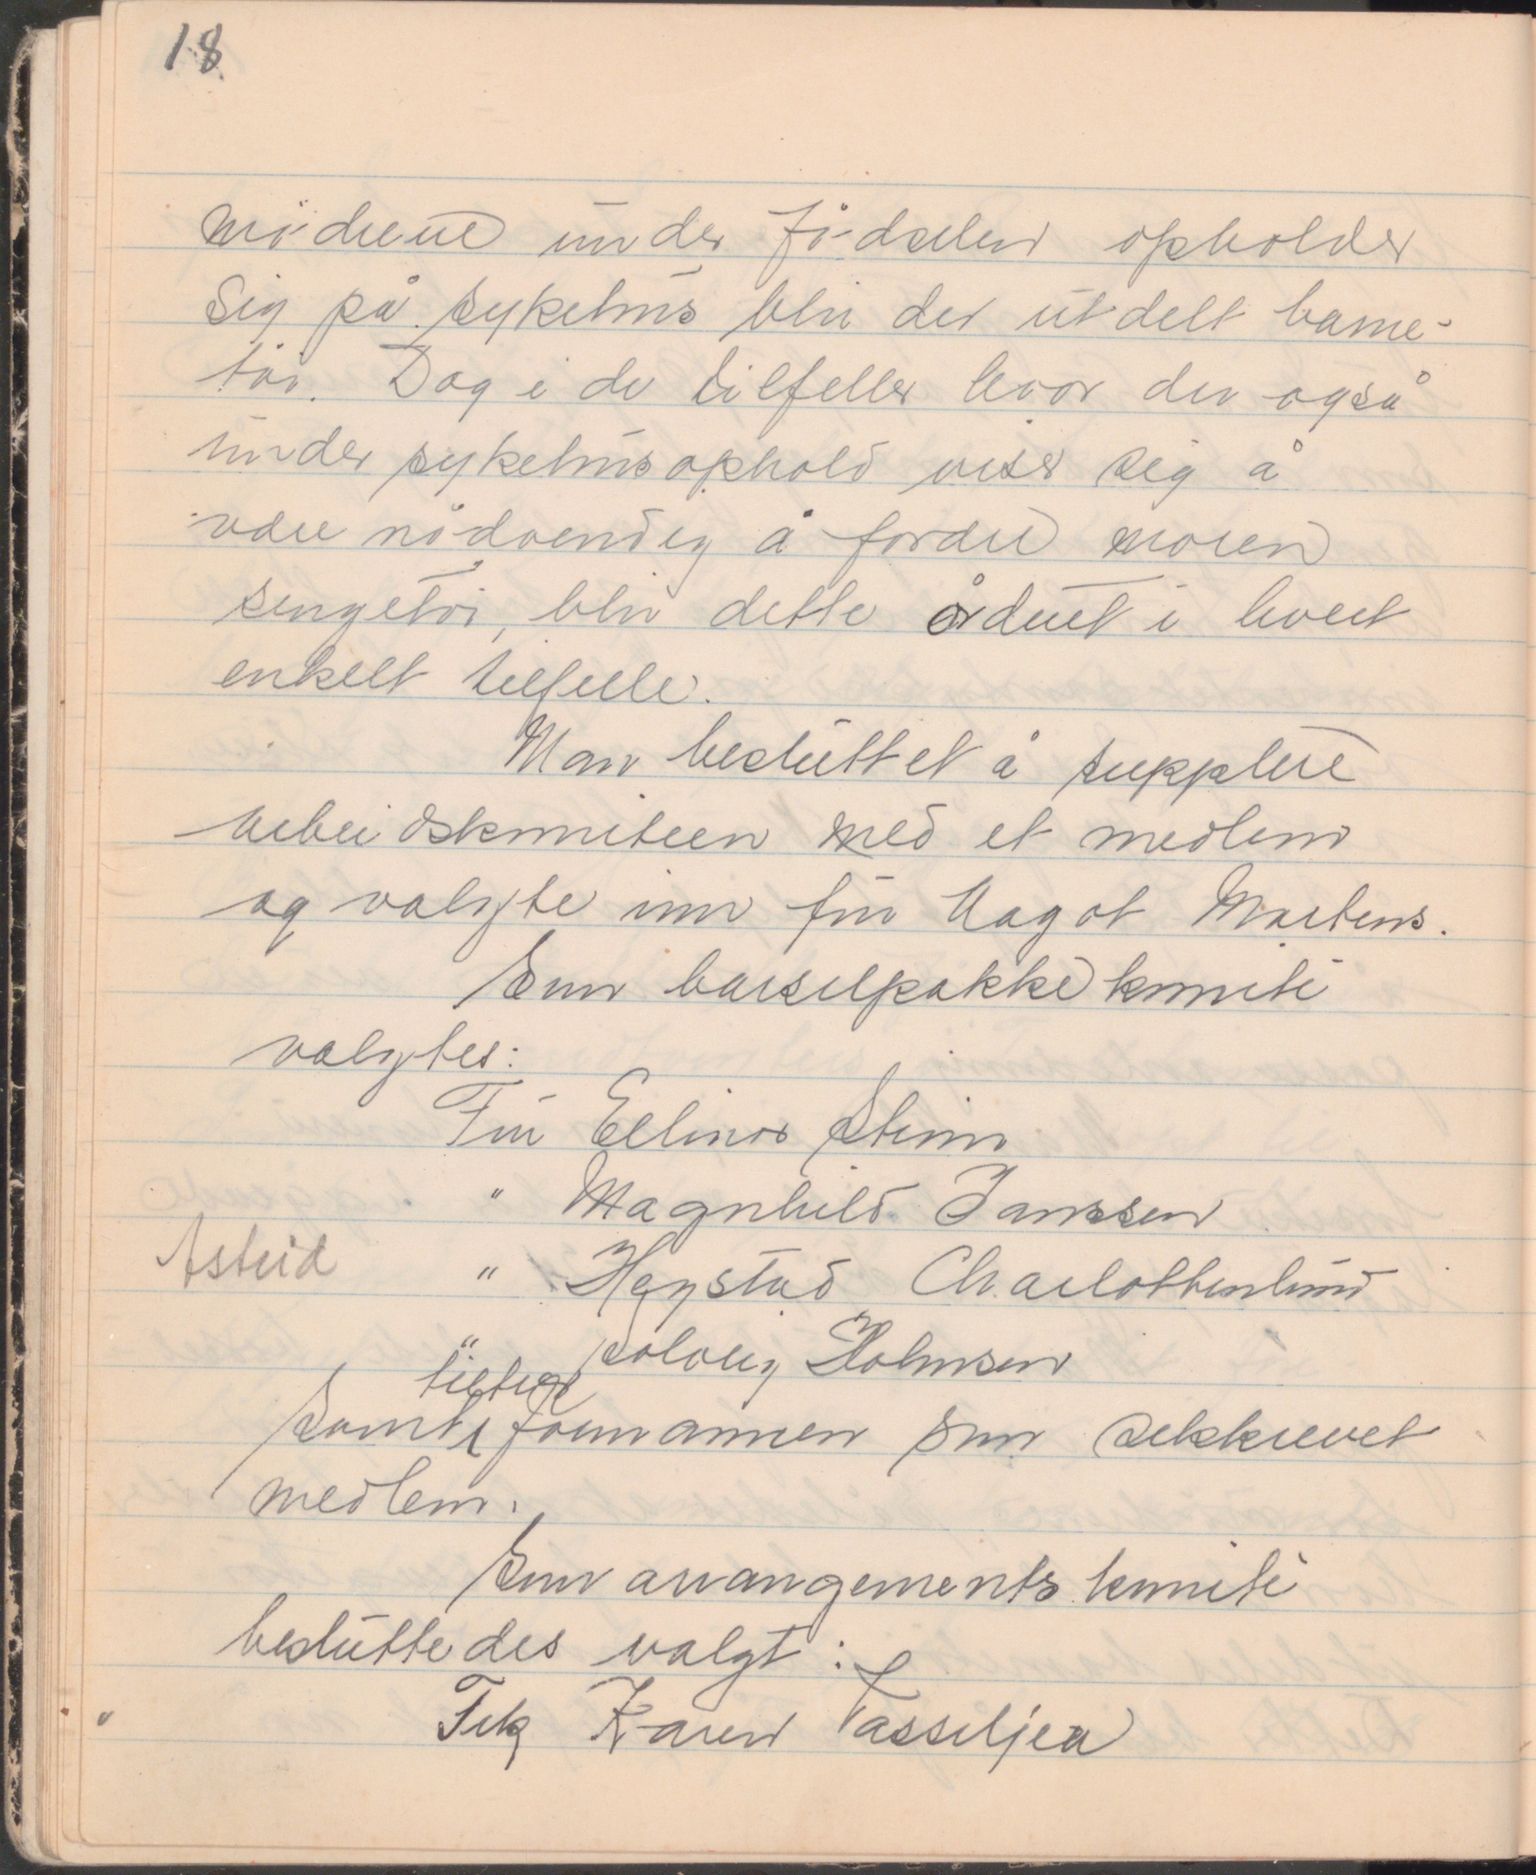 18
mødrene under fødselen opholder
sig på sykehus blir der utdelt barne-
tøi. Dog i de tilfeller hvor der også
under sykehusophold viser sig å
være nødvendig å fordre moren
sengetøi, blir dette ordnet i hvert
enkelt tilfelle.
Man besluttet å supplere
arbeidskomiteen med et medlem
og valgte inn fru Aagot Martens.
Som barselpakke komité
valgtes:
Fru Ellinor Stenn
" Magnhild Janssen
Astrid " Høystad Charlottenlund
" Solveig Holmsen
Samt tiltrer formannen som selvskrevet
medlem.
Som arrangements komité
besluttedes valgt:
Frk Karen Vasseljen